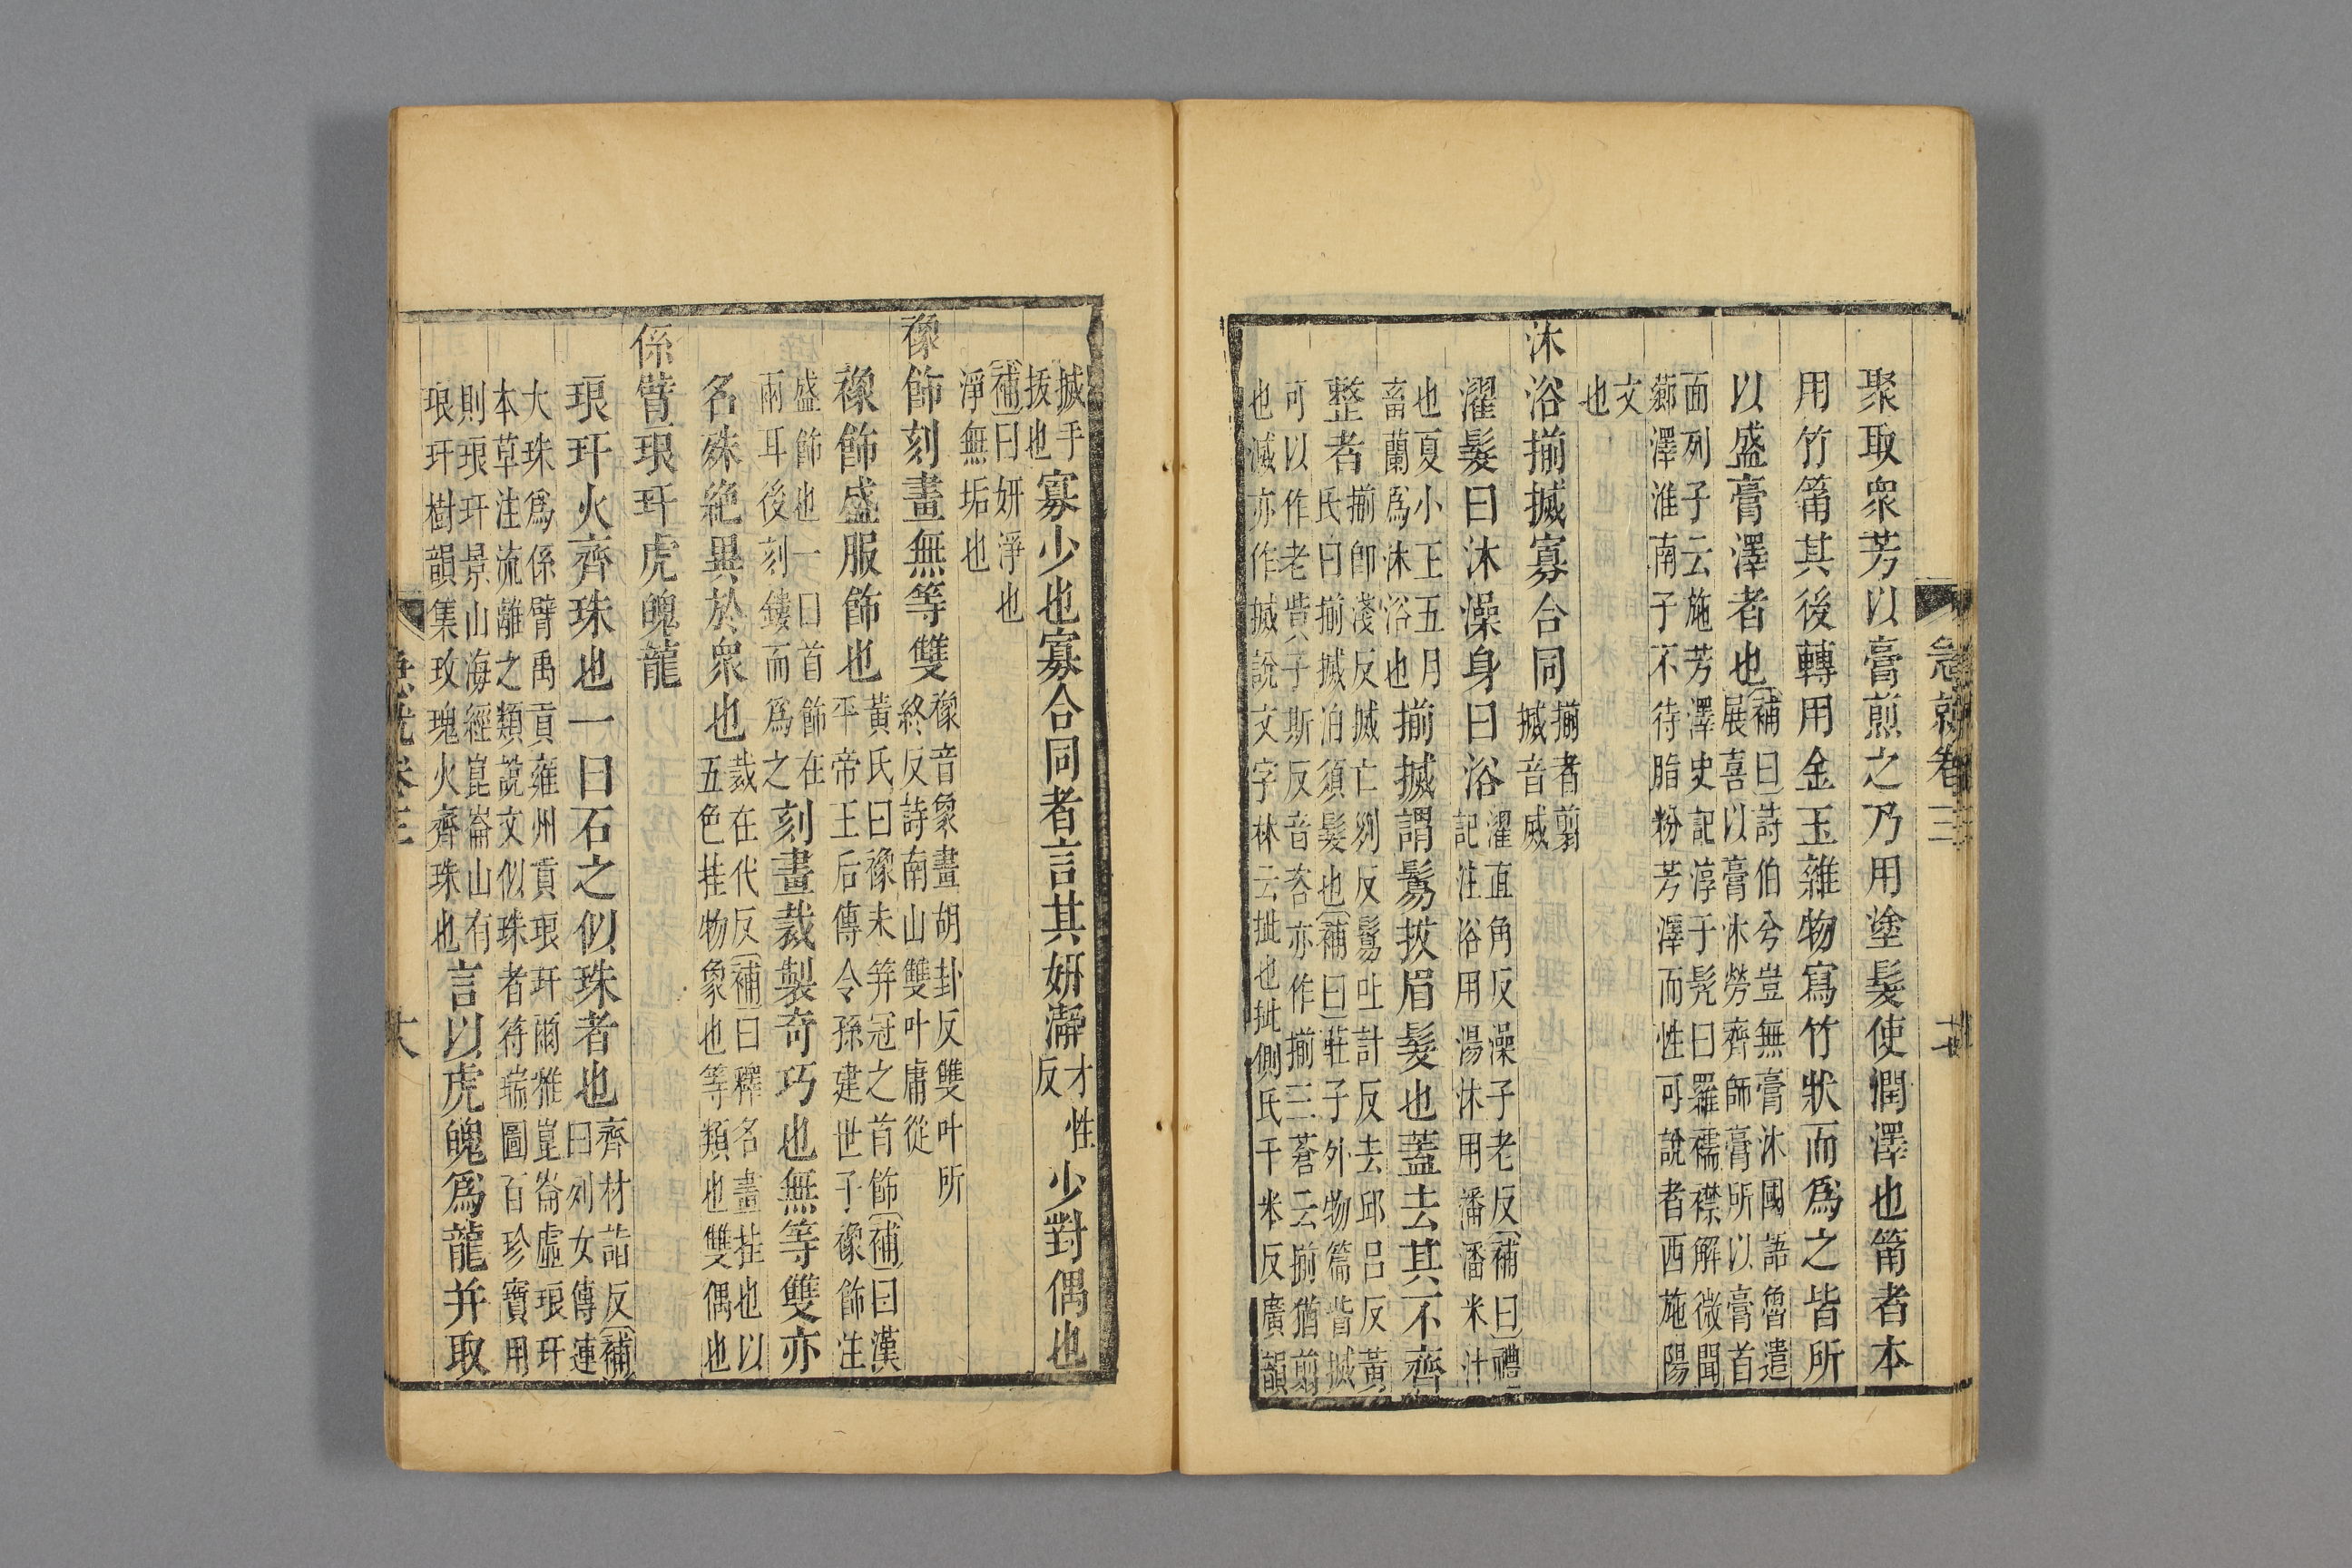 聚取衆芳以膏煎之乃用塗髮使潤澤也筩者本
用竹筩其後轉用金玉雜物寫竹狀而爲之皆所
以盛膏澤者也
〔補曰〕詩伯兮豈無膏沐國語魯遣
展喜以膏沐勞齊師膏所以膏首
面列子云施芳澤史記淳于髠曰羅襦襟解微聞
薌澤淮南子不待脂粉芳澤而性可說者西施陽
文
也
沐浴揃搣寡合同
揃者剪
搣音滅
濯髮曰沐澡身曰浴
濯直角反澡子老反〔補曰〕禮
記注浴用湯沐用潘潘米汁
也夏小正五月
畜蘭爲沐浴也
揃搣謂鬄拔眉髮也蓋去其不齊
整者
揃卽淺反搣亡列反鬄吐計反去邱呂反黃
氏曰揃搣治須髮也〔補曰〕莊子外物篇眥搣
可以作老眥子斯反音咨亦作揃三蒼云揃猶剪
也滅亦作搣說文字林云批也批側氏千米反廣韻
搣手
拔也
寡少也寡合同者言其妍瀞
才性
反
少對偶也
〔補〕曰妍淨也
淨無垢也
襐飾刻畫無等雙
襐音象畫胡卦反雙叶所
終反詩南山雙叶庸從
襐飾盛服飾也
黃氏曰襐未笄冠之首飾〔補〕曰漢
平帝王后傳令孫建世子襐飾注
盛飾也一曰首飾在
兩耳後刻鏤而爲之
刻畫裁製奇巧也無等雙亦
名殊絶異於衆也
裁在代反〔補〕曰釋名畫挂也以
五色挂物象也等類也雙偶也
係臂琅玕虎魄龍
琅玕火齊珠也一曰石之似珠者也
齊材詣反〔補〕
曰列女傳連
大珠爲係臂禹貢雍州貢琅玕爾雅崑崙虛琅玕
本草注流離之類說文似珠者符瑞圖百珍寶用
則琅玕景山海經崑崙山有
琅玕樹韻集玫瑰火齊珠也
言以虎魄爲龍并取
急就卷三
急就卷三